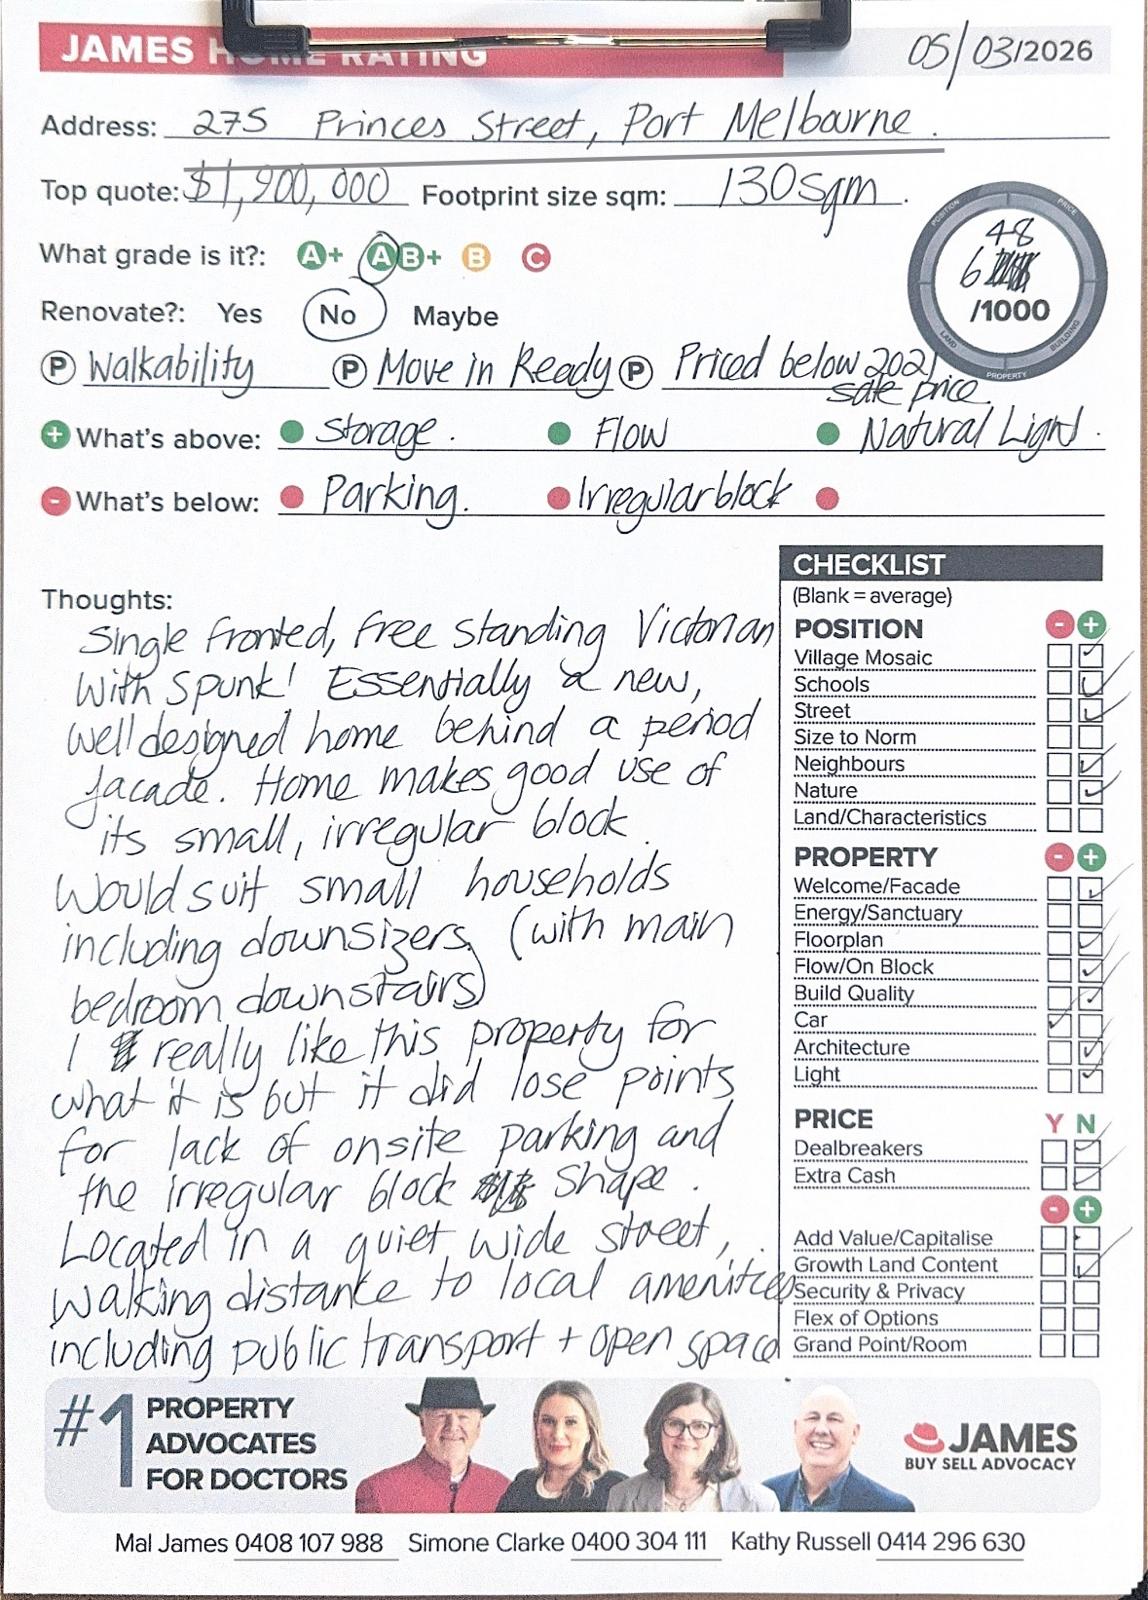 JAMES HOME RATING 05/03/2026
Address: 275 Princes Street, Port Melbourne.
Top quote: $1,900,000 Footprint size sqm: 130sqm.
What grade is it?: A+ A B+ B C
Renovate?: Yes No Maybe
648
/1000
POSITION PRICE BUILDING PROPERTY LAND
P Walkability P Move in Ready P Priced below 2021
sale price.
+ What's above: Storage. Flow Natural Light.
- What's below: Parking. Irregular block
Thoughts:
Single fronted, free standing Victorian
with spunk! Essentially a new,
well designed home behind a period
facade. Home makes good use of
its small, irregular block.
Would suit small households
including downsizers (with main
bedroom downstairs)
I really like this property for
what it is but it did lose points
for lack of onsite parking and
the irregular block shape.
Located in a quiet, wide street,
walking distance to local amenities
including public transport + open space
CHECKLIST
(Blank = average)
POSITION - +
Village Mosaic
Schools
Street
Size to Norm
Neighbours
Nature
Land/Characteristics
PROPERTY - +
Welcome/Facade
Energy/Sanctuary
Floorplan
Flow/On Block
Build Quality
Car
Architecture
Light
PRICE Y N
Dealbreakers
Extra Cash
- +
Add Value/Capitalise
Growth Land Content
Security & Privacy
Flex of Options
Grand Point/Room
#1 PROPERTY
ADVOCATES
FOR DOCTORS
JAMES
BUY SELL ADVOCACY
Mal James 0408 107 988 Simone Clarke 0400 304 111 Kathy Russell 0414 296 630